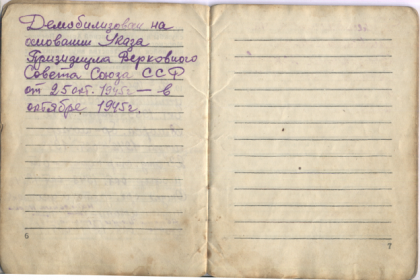 Демобилизован на
основании Указа
Призидиума Верховного
Совета Союза ССР
от 25 окт. 1945г — в
октябре 1945г.
6
7